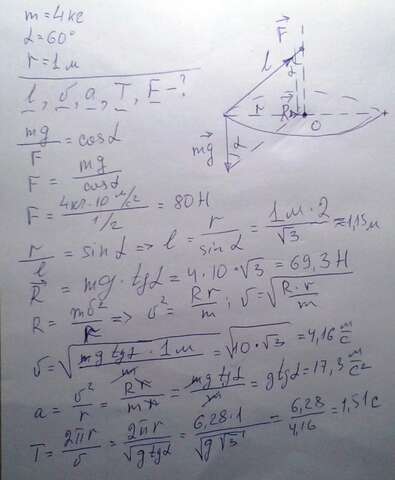 m = 4кг
α = 60°
r = 1м
l, υ, a, T, F - ?
mg/F = cosα
F = mg/cosα
F = 4кг·10 м/с²/1/2 = 80Н
r/l = sinα => l = r/sinα = 1м·2/√3 ≈ 1,15м
R = mg·tgα = 4·10·√3 = 69,3Н
R = mυ²/r => υ² = R·r/m; υ = √R·r/m
υ = √mgtgα·1м/m = √10·√3 = 4,16 м/с
a = υ²/r = Rr/mr = mgtgα/m = gtgα = 17,3 м/с²
T = 2πr/υ = 2πr/√gtgα = 6,28·1/√g√3 = 6,28/4,16 = 1,51с
F
α
l
T
R
r
O
α
mg